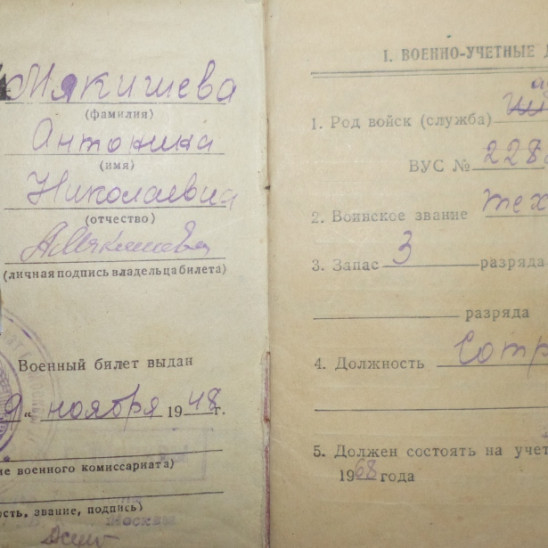 Мякишева
(фамилия)
Антонина
(имя)
Николаевна
(отчество)
АМякишева
(личная подпись владельца билета)
Военный билет выдан
9 „ ноября 1948 г.
ие военного комиссариата)
сть, звание, подпись)
Москвы
I. ВОЕННО-УЧЕТНЫЕ Д
1. Род войск (служба)
ВУС № 228
2. Воинское звание тех
3. Запас 3 разряда
разряда
4. Должность Сотр
5. Должен состоять на учет
1968 года